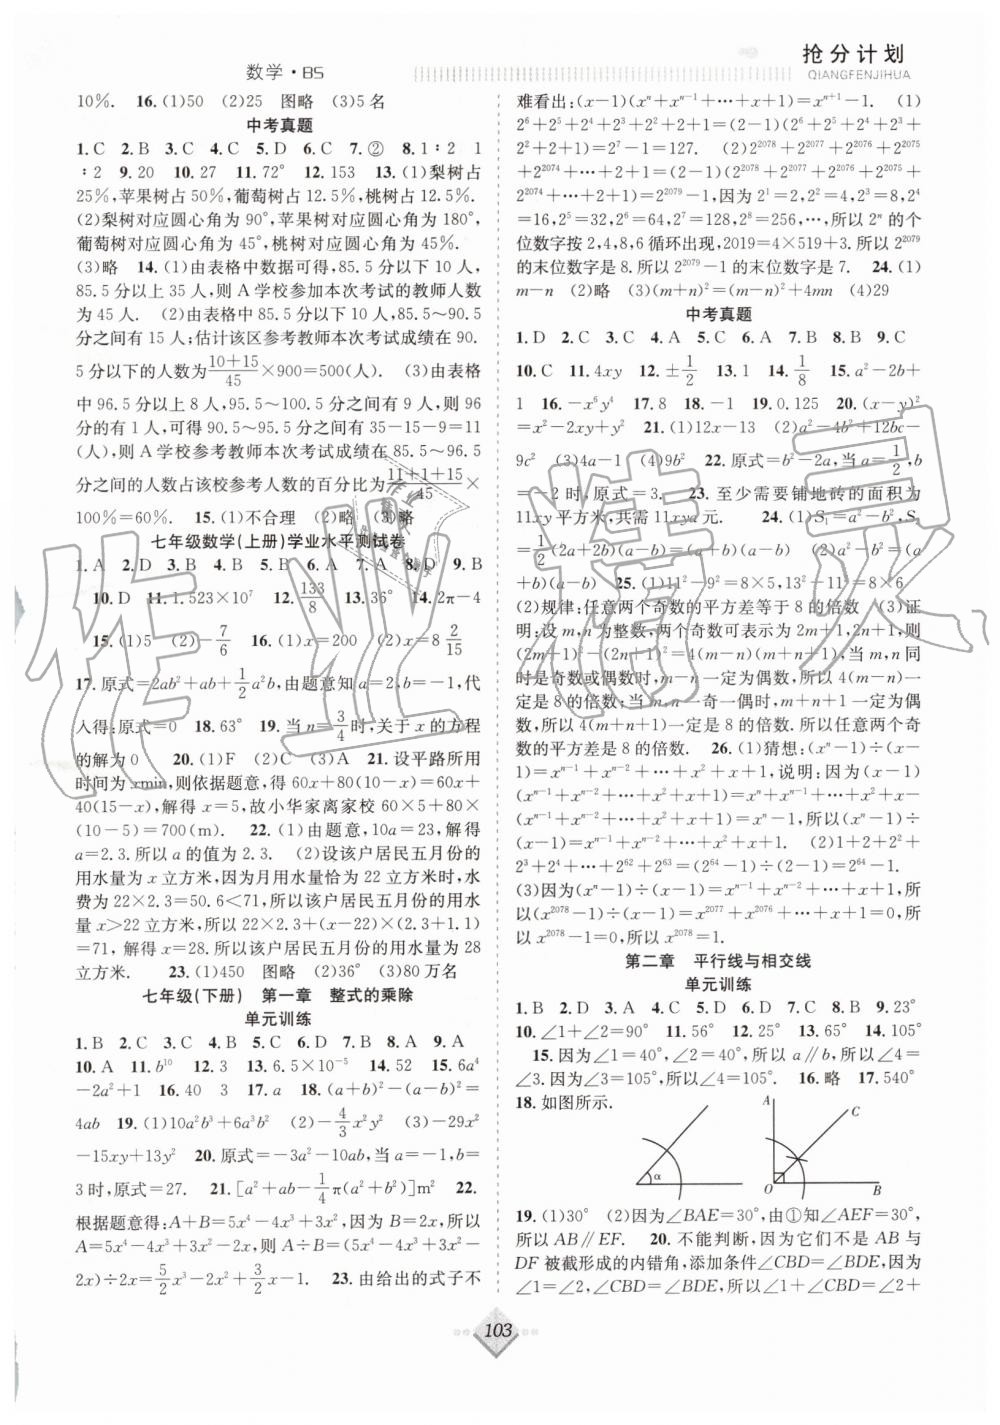 数学·BS
抢分计划
QIANGFENJIHUA
10%. 16.(1)50 (2)25 图略 (3)5名
中考真题
1.C 2.B 3.C 4.C 5.D 6.C 7.② 8.1∶2 1
∶2 9.20 10.27 11.72° 12.153 13.(1)梨树占
25%,苹果树占50%,葡萄树占12.5%,桃树占12.5%.
(2)梨树对应圆心角为90°,苹果树对应圆心角为180°,
葡萄树对应圆心角为45°,桃树对应圆心角为45%.
(3)略 14.(1)由表格中数据可得,85.5分以下10人,
85.5分以上35人,则A学校参加本次考试的教师人数
为45人. (2)由表格中85.5分以下10人,85.5~90.5
分之间有15人;估计该区参考教师本次考试成绩在90.
5分以下的人数为\frac{10+15}{45}×900=500(人). (3)由表格
中96.5分以上8人,95.5~100.5分之间有9人,则96
分的有1人,可得90.5~95.5分之间有35-15-9=11
(人),则A学校参考教师本次考试成绩在85.5~96.5
分之间的人数占该校参考人数的百分比为\frac{11+1+15}{45}×
100%=60%. 15.(1)不合理 (2)略 (3)略
七年级数学(上册)学业水平测试卷
1.A 2.D 3.B 4.B 5.C 6.A 7.A 8.D 9.B
10.D 11.1.523×10^7 12.\frac{133}{8} 13.36° 14.2π-4
15.(1)5 (2)-\frac{7}{6} 16.(1)x=200 (2)x=8\frac{2}{15}
17.原式=2ab^2+ab+\frac{1}{2}a^2b,由题意知a=2,b=-1,代
入得:原式=0 18.63° 19.当n=\frac{3}{4}时,关于x的方程
的解为0 20.(1)F (2)C (3)A 21.设平路所用
时间为xmin,则依据题意,得60x+80(10-x)=60x+
40(15-x),解得x=5,故小华家离家校60×5+80×
(10-5)=700(m). 22.(1)由题意,10a=23,解得
a=2.3.所以a的值为2.3. (2)设该户居民五月份的
用水量为x立方米,因为月用水量恰为22立方米时,水
费为22×2.3=50.6<71,所以该户居民五月份的用水
量x>22立方米,所以22×2.3+(x-22)×(2.3+1.1)
=71,解得x=28.所以该户居民五月份的用水量为28
立方米. 23.(1)450 图略 (2)36° (3)80万名
七年级(下册) 第一章 整式的乘除
单元训练
1.B 2.C 3.C 4.B 5.C 6.D 7.B 8.A 9.A
10.A 11.b^{10} 12.3 13.6.5×10^{-5} 14.52 15.6a^4
-2a^2+1 16.40 3 17.a 18.(a+b)^2-(a-b)^2=
4ab 19.(1)10a^2b^3+6a^3b^2 (2)-\frac{4}{3}x^2y^2 (3)-29x^2
-15xy+13y^2 20.原式=-3a^2-10ab,当a=-1,b=
3时,原式=27. 21.[a^2+ab-\frac{1}{4}π(a^2+b^2)]m^2 22.
根据题意得:A+B=5x^4-4x^3+3x^2,因为B=2x,所以
A=5x^4-4x^3+3x^2-2x,则A÷B=(5x^4-4x^3+3x^2-
2x)÷2x=\frac{5}{2}x^3-2x^2+\frac{3}{2}x-1. 23.由给出的式子不
难看出:(x-1)(x^n+x^{n-1}+…+x+1)=x^{n+1}-1. (1)
2^6+2^5+2^4+2^3+2^2+2+1=(2-1)(2^6+2^5+2^4+2^3+
2^2+2+1)=2^7-1=127. (2)2^{2078}+2^{2077}+2^{2076}+2^{2075}
+2^{2074}+…+2+1=(2-1)(2^{2078}+2^{2077}+2^{2076}+2^{2075}+
2^{2074}+…+2+1)=2^{2079}-1,因为2^1=2,2^2=4,2^3=8,2^4
=16,2^5=32,2^6=64,2^7=128,2^8=256,…,所以2^n的个
位数字按2,4,8,6循环出现,2019=4×519+3.所以2^{2079}
的末位数字是8.所以2^{2079}-1的末位数字是7. 24.(1)
m-n (2)略 (3)(m+n)^2=(m-n)^2+4mn (4)29
中考真题
1.D 2.C 3.C 4.A 5.A 6.D 7.B 8.B 9.C
10.C 11.4xy 12.±\frac{1}{2} 13.1 14.\frac{1}{8} 15.a^2-2b+
1 16.-x^6y^4 17.8 18.-1 19.0.125 20.(x-y)^2
=x^2-2xy+y^2 21.(1)12x-13 (2)a^2-4b^2+12bc-
9c^2 (3)4a-1 (4)9b^2 22.原式=b^2-2a,当a=\frac{1}{2},b
=-2时,原式=3. 23.至少需要铺地砖的面积为
11xy平方米,共需11xya元. 24.(1)S_1=a^2-b^2,S_2
=\frac{1}{2}(2a+2b)(a-b)=(a+b)(a-b) (2)a^2-b^2=(a
+b)(a-b) 25.(1)11^2-9^2=8×5,13^2-11^2=8×6
(2)规律:任意两个奇数的平方差等于8的倍数 (3)证
明:设m,n为整数,两个奇数可表示为2m+1,2n+1,则
(2m+1)^2-(2n+1)^2=4(m-n)(m+n+1),当m,n同
时是奇数或偶数时,m-n一定为偶数,所以4(m-n)一
定是8的倍数;当m,n一奇一偶时,m+n+1一定为偶
数,所以4(m+n+1)一定是8的倍数.所以任意两个奇
数的平方差是8的倍数. 26.(1)猜想:(x^n-1)÷(x-
1)=x^{n-1}+x^{n-2}+…+x^2+x+1,说明:因为(x-1)
(x^{n-1}+x^{n-2}+…+x^2+x+1)=x^n+x^{n-1}+…+x^2+x-
(x^{n-1}+x^{n-2}+…+x^2+x+1)=x^n-1,所以(x^n-1)÷
(x-1)=x^{n-1}+x^{n-2}+…+x^2+x+1. (2)1+2+2^2+
2^3+2^4+…+2^{62}+2^{63}=(2^{64}-1)÷(2-1)=2^{64}-1.
(3)因为(x^n-1)÷(x-1)=x^{n-1}+x^{n-2}+…+x+1,所
以(x^{2078}-1)÷(x-1)=x^{2077}+x^{2076}+…+x+1=0,所
以x^{2078}-1=0,所以x^{2078}=1.
第二章 平行线与相交线
单元训练
1.B 2.D 3.A 4.C 5.D 6.D 7.C 8.B 9.23°
10.∠1+∠2=90° 11.56° 12.55° 13.65° 14.105°
15.因为∠1=40°,∠2=40°,所以a∥b,所以∠4=
∠3.因为∠3=105°,所以∠4=105°. 16.略 17.540°
18.如图所示.
α
A
C
O
B
19.(1)30° (2)因为∠BAE=30°,由①知∠AEF=30°.
所以AB∥EF. 20.不能判断,因为它们不是AB与
DF被截形成的内错角,添加条件∠CBD=∠BDE,因为
∠1=∠2,∠CBD=∠BDE,所以∠1+∠CBD=∠2+
103
作业精灵